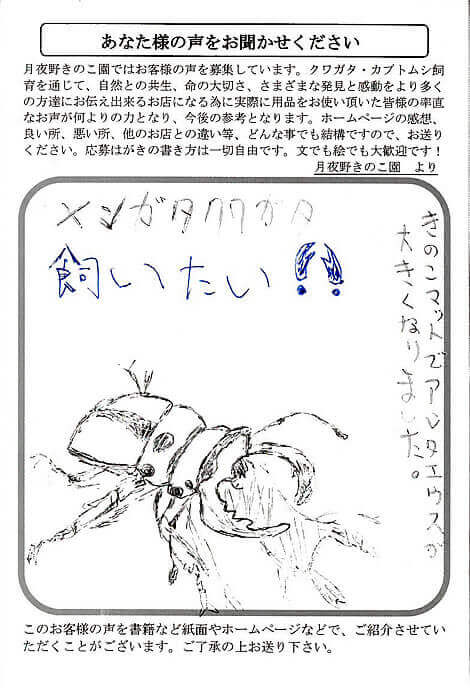 あなた様の声をお聞かせください
月夜野きのこ園ではお客様の声を募集しています。クワガタ・カブトムシ飼
育を通じて、自然との共生、命の大切さ、さまざまな発見と感動をより多く
の方達にお伝え出来るお店になる為に実際に用品をお使い頂いた皆様の率直
なお声が何よりの力となり、今後の参考となります。ホームページの感想、
良い所、悪い所、他のお店との違い等、どんな事でも結構ですので、お送り
ください。応募はがきの書き方は一切自由です。文でも絵でも大歓迎です！
月夜野きのこ園　より
きのこマットでアンタエウスが
大きくなりました。
メンガタクワガタ
飼いたい！！
このお客様の声を書籍など紙面やホームページなどで、ご紹介させてい
ただくことがございます。ご了承の上お送り下さい。